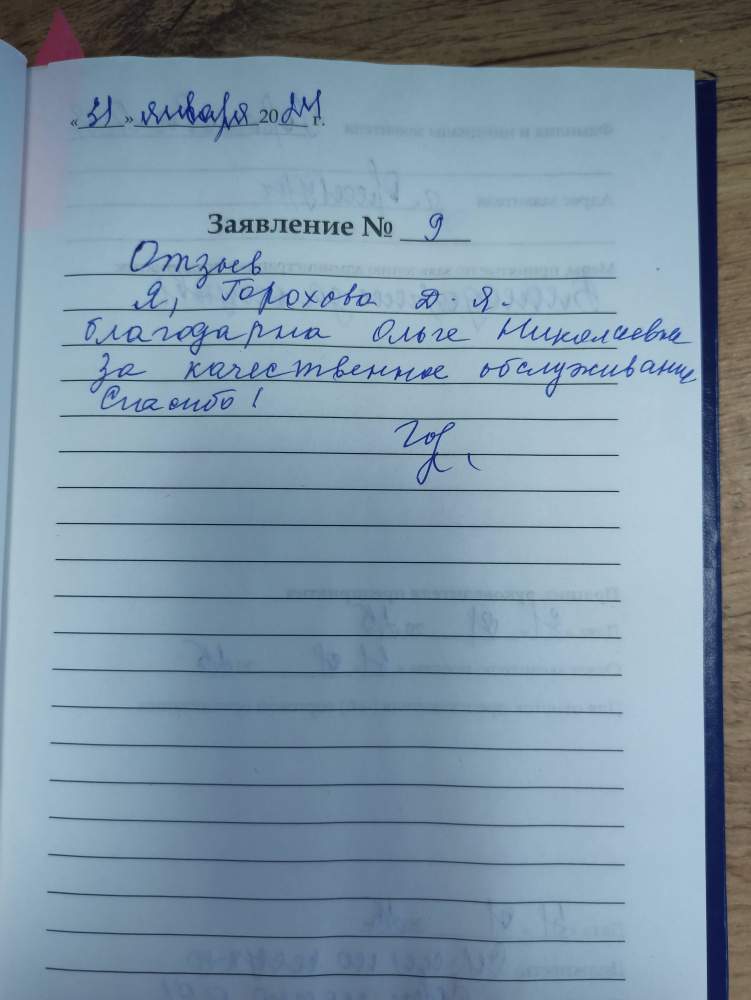 «31» января 2024 г.
Заявление № 9
Отзыв
Я, Горохова Д. Я.
благодарна Ольге Николаевне
за качественное обслуживание
Спасибо!